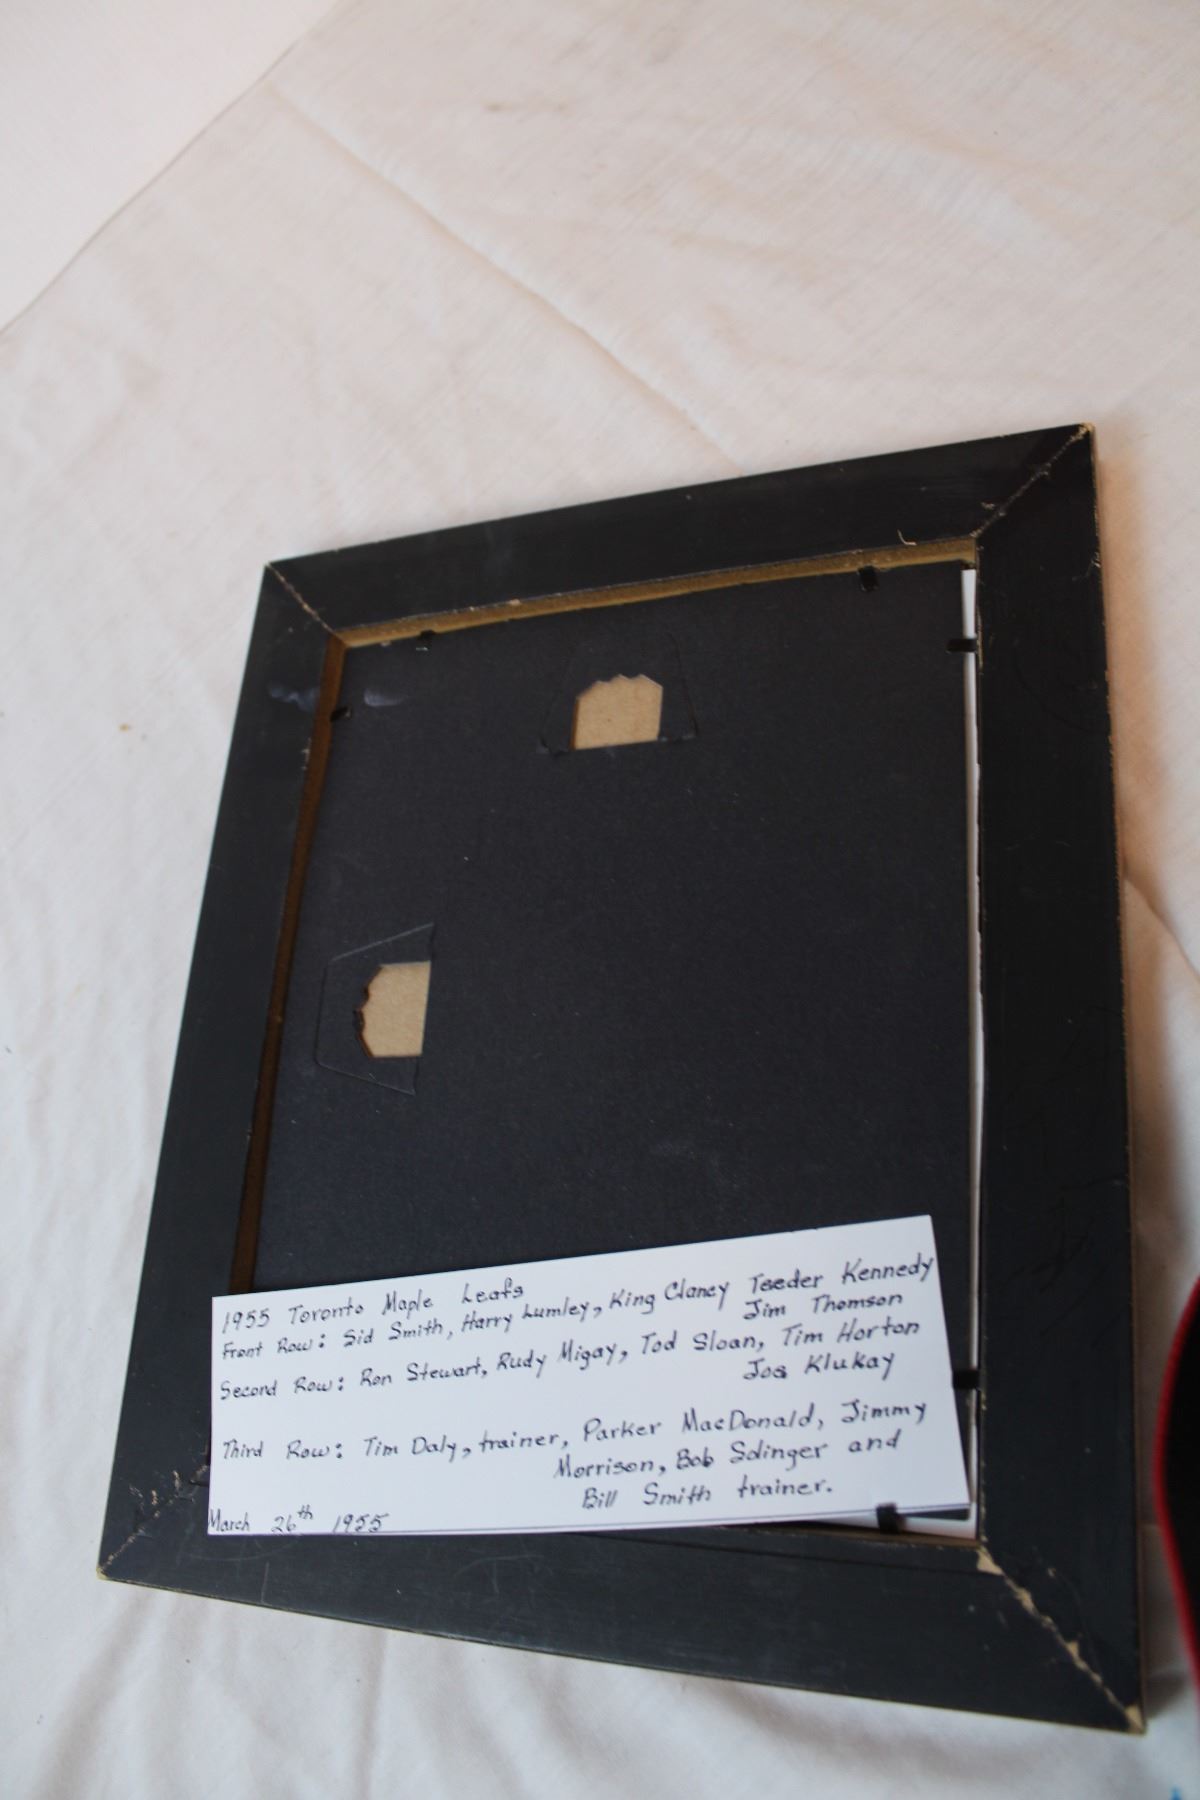 1955 Toronto Maple Leafs
Front Row: Sid Smith, Harry Lumley, King Clancy Teeder Kennedy
Jim Thomson
Second Row: Ron Stewart, Rudy Migay, Tod Sloan, Tim Horton
Joe Klukay
Third Row: Tim Daly, trainer, Parker MacDonald, Jimmy
Morrison, Bob Solinger and
Bill Smith trainer.
March 26th 1955